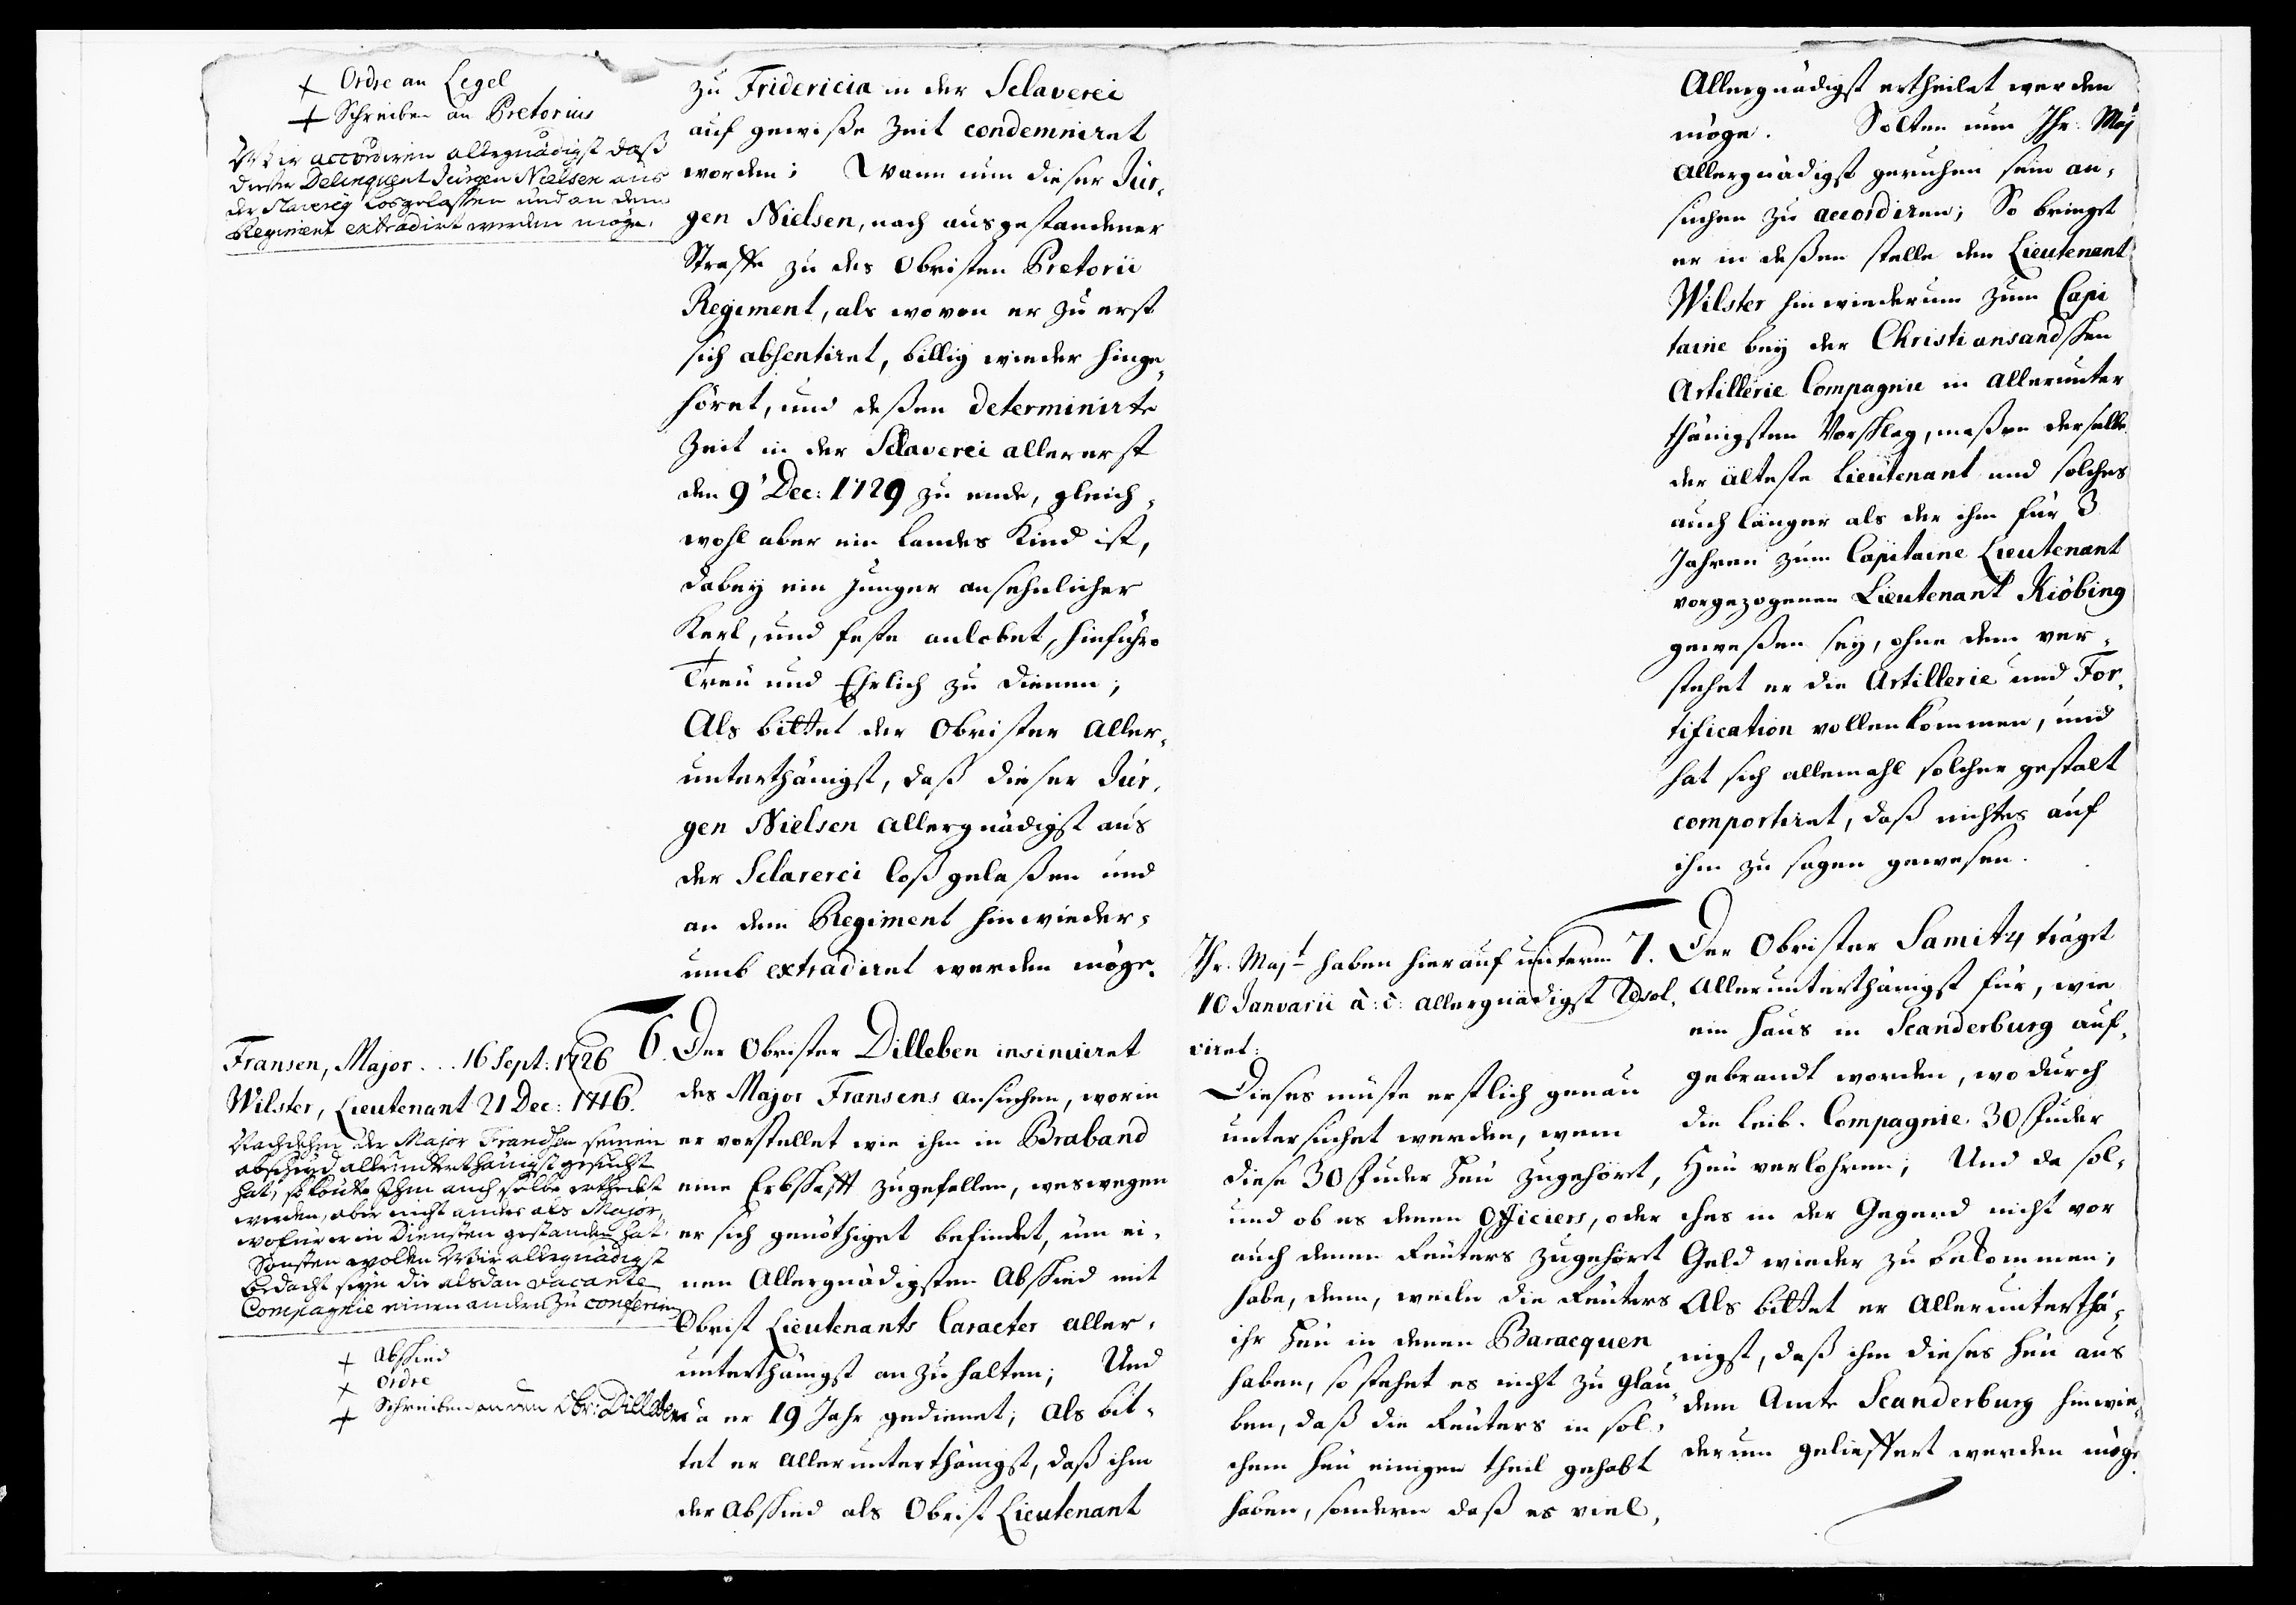 Ordre an Legel
Schreiben an Pretorius
Wir accordiren allergnädigst daß
dieser Delinquent Jürgen Nielsen aus
der Slaverey losgelassen und an dem
Regiment extradirt werden möge.
zu Fridericia in der Sclaverei
auf gewiße Zeit condemniret
worden; Wann nun dieser Jür-
gen Nielsen, nach ausgestandener
Straffe zu des Obristen Pretorii
Regiment, als wovon er zu erst
sich absentiret, billig wieder hinge-
höret, und deßen determinirte
Zeit in der Sclaverei allererst
den 9' Dec: 1729 zu ende, gleich-
wohl aber ein Landes Kind ist,
dabey ein junger ansehnlicher
Kerl, und feste anlobet, hinführo
Treu und Ehrlich zu dienen;
Als bittet der Obrister Aller-
unterthänigst, daß dieser Jür-
gen Nielsen Allergnädigst aus
der Sclaverei loß gelaßen und
an dem Regiment hinwieder-
umb extradiret werden möge.
Fransen, Major... 16 Sept: 1726
Wilster, Lieutenant 21 Dec: 1716.
Nachdehm der Major Frandsen seinen
abschied allerunterthänigst gesucht
hat, so könte Ihm auch selbe ertheilet
werden, aber nicht anders als Major,
wofür er in Diensten gestanden hat.
Sonsten wolen Wir allergnädigst
bedacht seyn die alsdan vacante
Compagnie einen andern zu conferiren
Abschied
Ordre
Schreiben an den Obr: Dilleben
6. Der Obrister Dilleben insinuiret
des Major Fransens ansuchen, worin
er vorstellet wie ihm in Braband
eine Erbschafft zugefallen, weswegen
er sich genöthiget befindet, um ei-
nen Allergnädigsten Abschied mit
Obrist Lieutenants Caracter aller-
unterthänigst an zu halten; Und
da er 19 Jahr gedienet; Als bit-
tet er allerunterthänigst, daß ihm
der Abschied als Obrist Lieutenant
Allergnädigst ertheilet werden
möge. Solten nun Ihr: Maj
Allergnädigst geruhen sein an-
suchen zu accordiren; So bringet
er in deßen stelle den Lieutenant
Wilster hinwiederum zum Capi
taine bey der Christiansandschen
Artillerie Compagnie in allerunter
thänigsten Vorschlag, maßen derselbe
der älteste Lieutenant und solches
auch länger als der ihm für 3
Jahren zum Capitaine Lieutenant
vorgezogenen Lieutenant Kiöbing
geweßen sey, ohne dem ver-
stehet er die Artillerie und For-
tification vollenkommen, und
hat sich allemahl solcher gestalt
comportiret, daß nichtes auf
ihm zu sagen gewesen.
Ihr. Majt haben hierauf unterm
10 Januarii a: c: allergnädigst Resol-
viret:
Dieses müste erstlich genau
untersuchet werden, wem
diese 30 Fuder Heu zugehört,
und ob es denen Officiers, oder
auch denen Reuters zugehört
habe, denn, weile die Reuters
ihr Heu in denen Baracquen
haben, so stehet es nicht zu glau-
ben, daß die Reuters in sol-
chem Heu einigen theil gehabt
haben, sondern daß es viel-
7. Der Obrister Samitz träget
Allerunterthänigst für, wie
ein Haus in Scanderburg auf-
gebrandt worden, wodurch
die Leib-Compagnie 30 Fuder
Heu verlohren; Und da sol-
ches in der Gegend nicht vor
Geld wieder zu bekommen;
Als bittet er Allerunterthä-
nigst, daß ihm dieses Heu aus
dem Amte Scanderburg hinwie-
derum geliefert werden möge